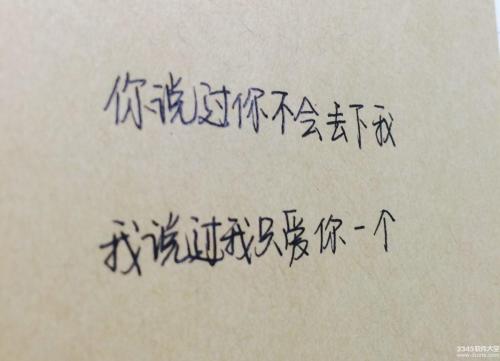 你说过你不会去下我
我说过我只爱你一个
2345软件大全